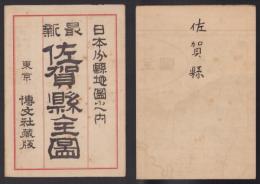 日本分縣地圖之內
最新
佐賀縣全圖
東京
博文社藏版
佐賀縣